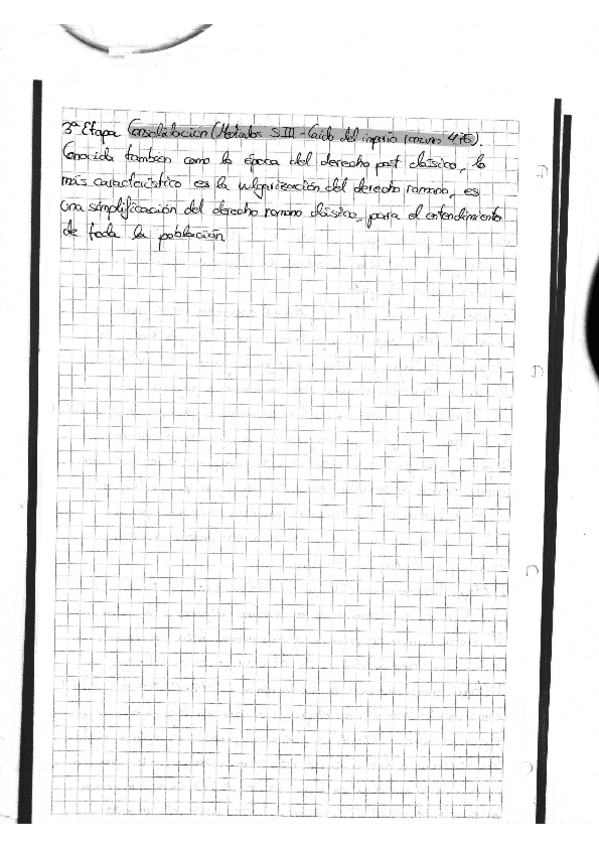 3ª Etapa Consolidación (Mediados S.III - Caída del imperio romano 476).
Conocida tambien como la época del derecho post clásico, lo
más característico es la vulgarización del derecho romano, es
una simplificación del derecho romano clásico, para el entendimiento
de toda la población